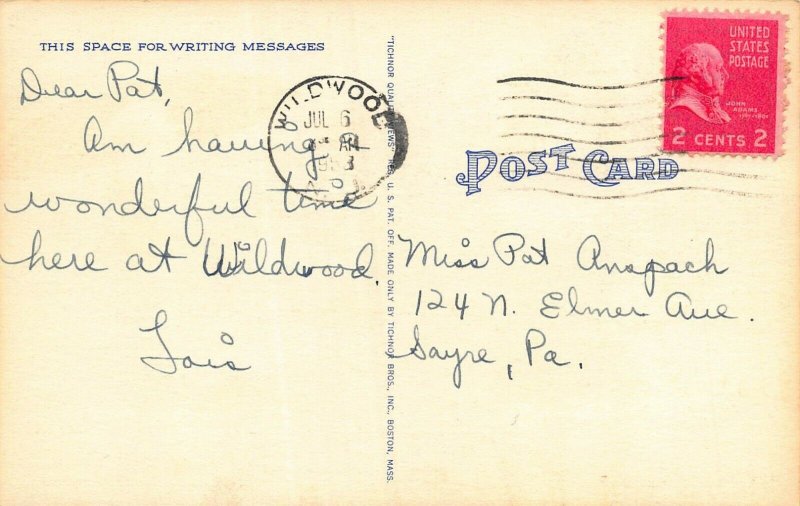 THIS SPACE FOR WRITING MESSAGES
Dear Pat,
Am having a
wonderful time
here at Wildwood.
Lois
WILDWOOD
JUL 6
AM
"TICHNOR QUALITY VIEWS" REG. U. S. PAT. OFF. MADE ONLY BY TICHNOR BROS., INC., BOSTON, MASS.
UNITED
STATES
POSTAGE
JOHN
ADAMS
2 CENTS 2
POST CARD
Miss Pat Anspach
124 N. Elmer Ave.
Sayre, Pa.